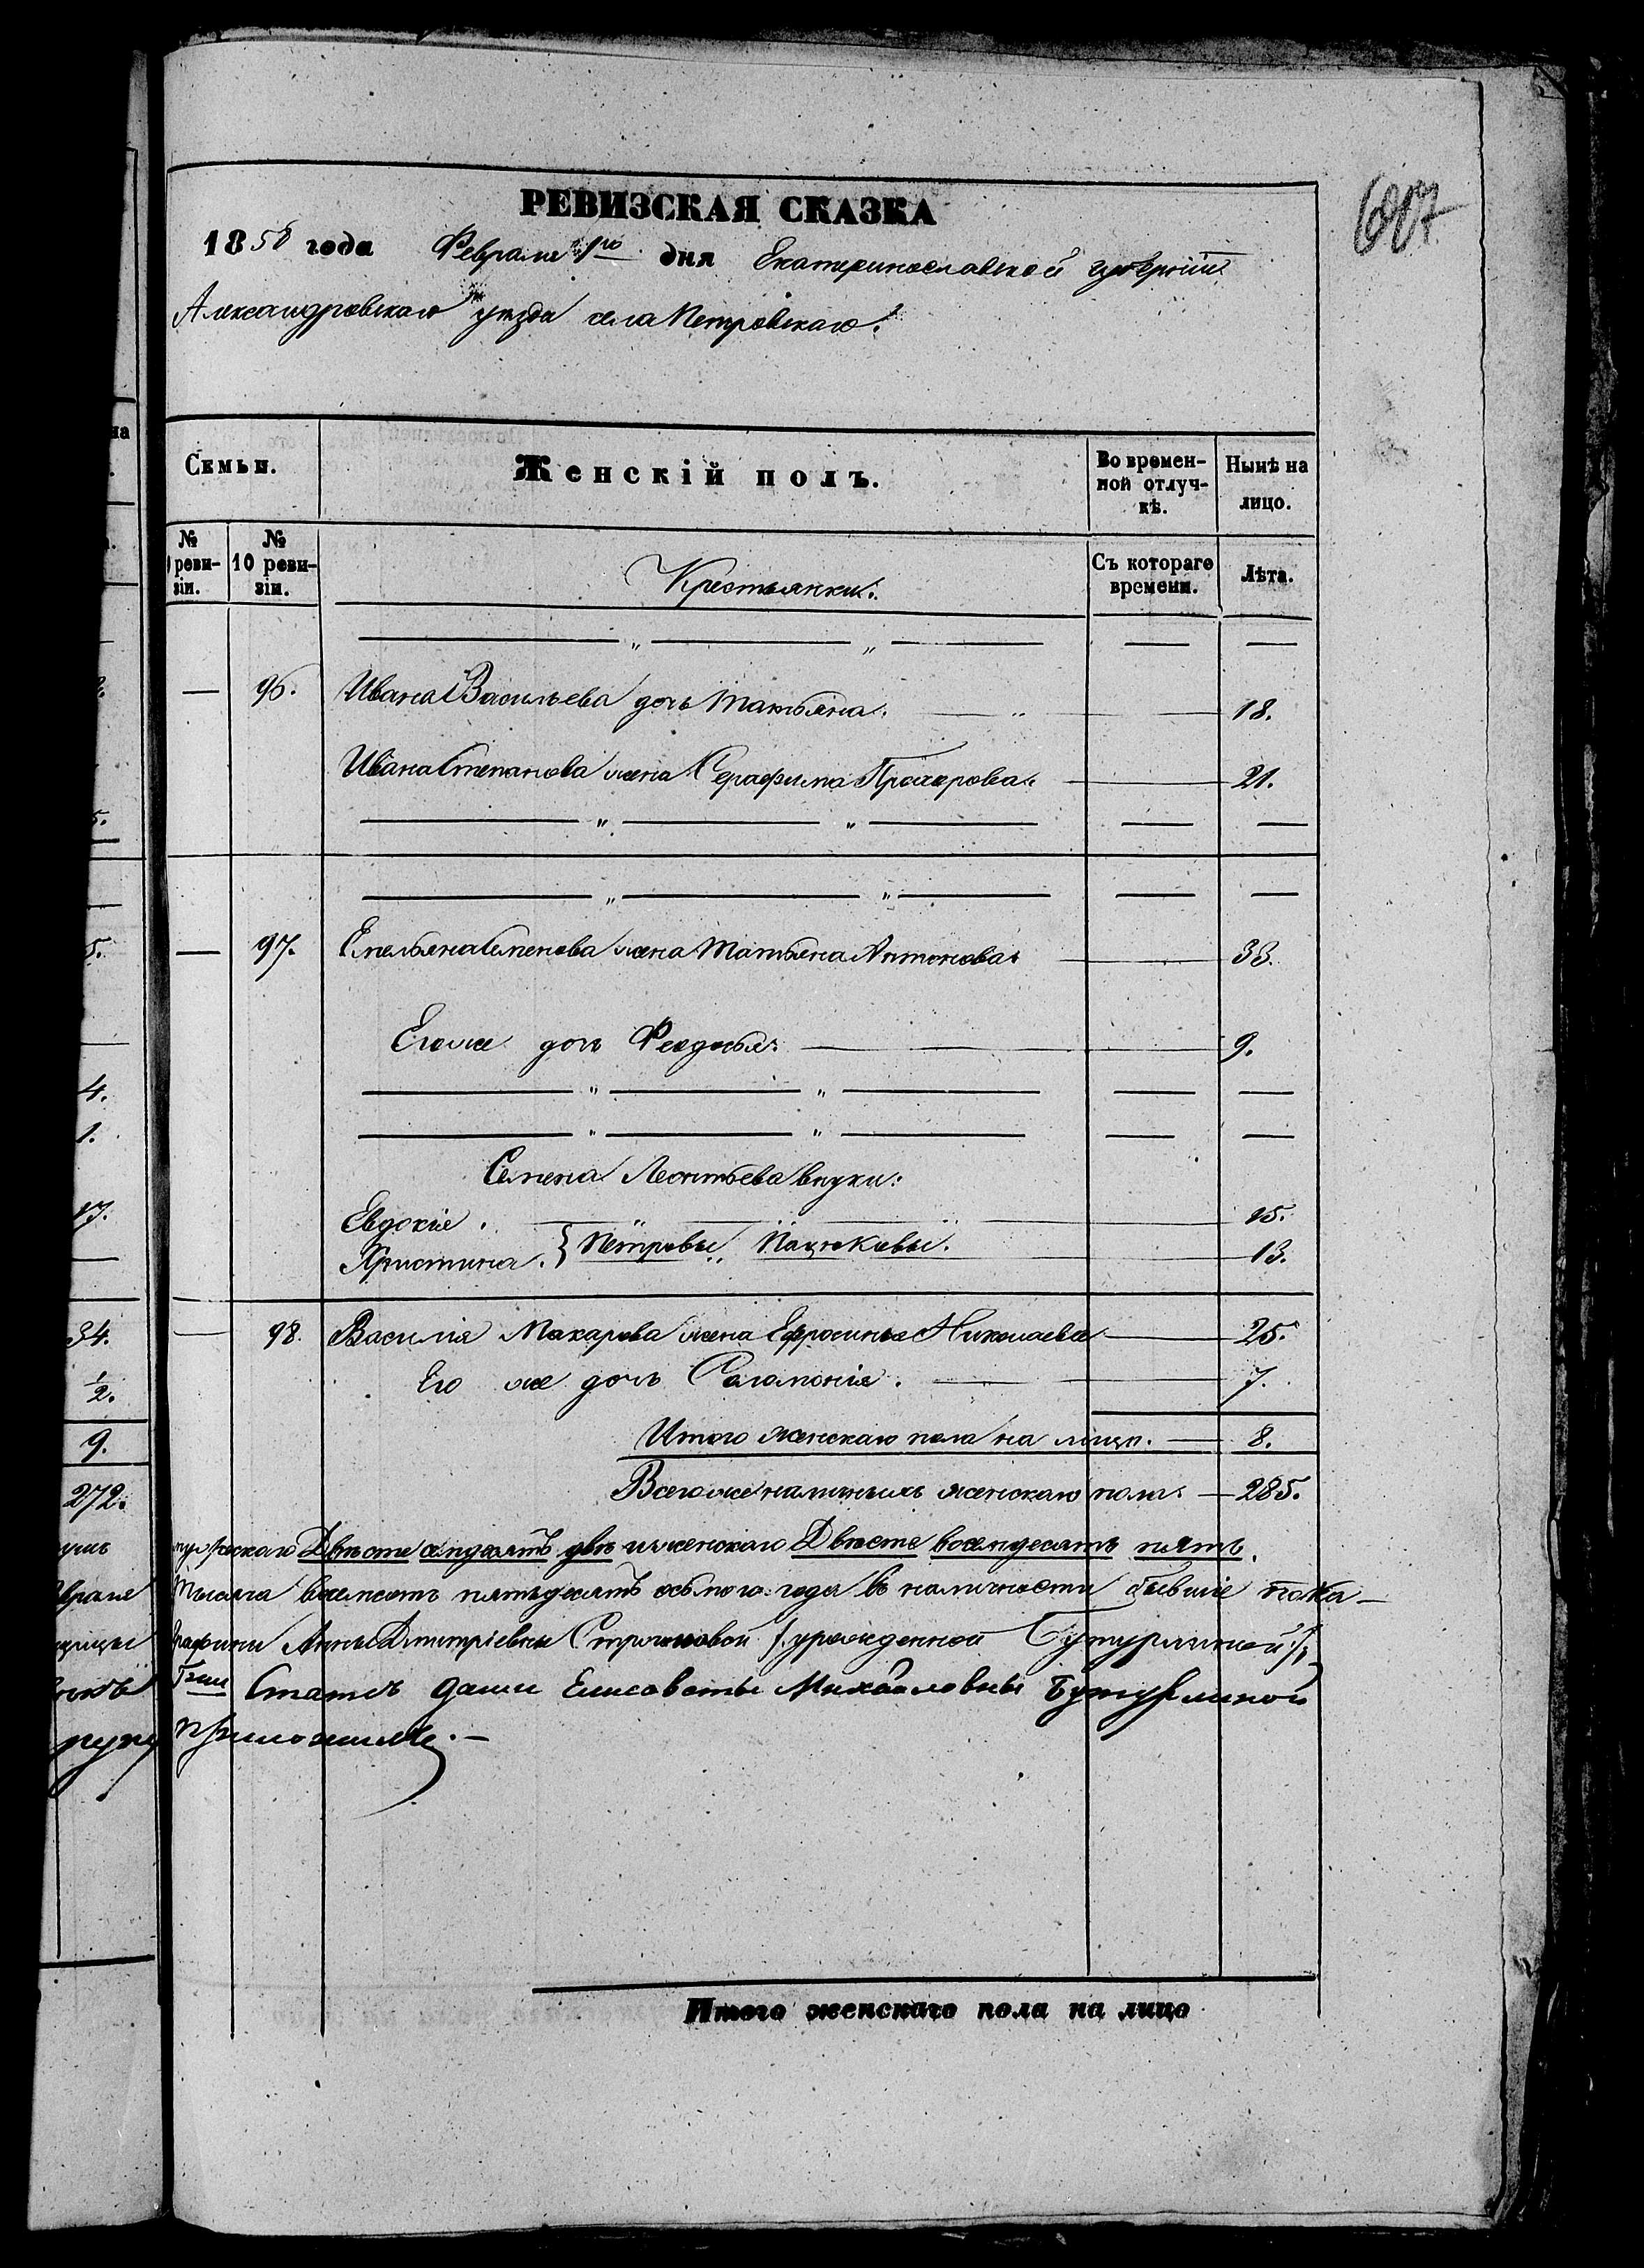 607
РЕВИЗСКАЯ СКАЗКА
1858 года Февраля 1го дня Екатеринославской губернии
Александровскаго уѣзда села Петровскаго.
Семьи.
Женскій полъ.
Во времен-
ной отлуч-
кѣ.
Нынѣ на
лицо.
№
реви-
зіи.
№
10 реви-
зіи.
Крестьянки.
Съ котораго
времени.
Лѣта.
— 96. Ивана Васильева дочь Татьяна. 18.
Ивана Степанова жена Серафима Прохорова 21.
— 97. Емельяна Семенова жена Татьяна Антонова 33.
Его же дочь Феодосья 9.
Семена Леонтьева внуки:
Евдокія. 15.
Христина. } Петровы Пацюковы. 13.
— 98. Василія Макарова жена Ефросинья Николаева 25.
Его же дочь Соломонія. 7.
Итого женскаго пола на лицо. 8.
Всего же наличныхъ женскаго пола. 285.
272.
мужескаго Двѣсти семдесятъ двѣ и женскаго Двѣсте восемдесятъ пять.
Тысяча восемсотъ пятьдесятъ осьмого года въ наличности бывшіе пока-
Графини Анны Дмитріевны Строгановой /:урожденной Бутурлиной:/
Статсъ Дамы Елисаветы Михайловны Бутурлиной
руку приложилъ.
Итого женскаго пола на лицо